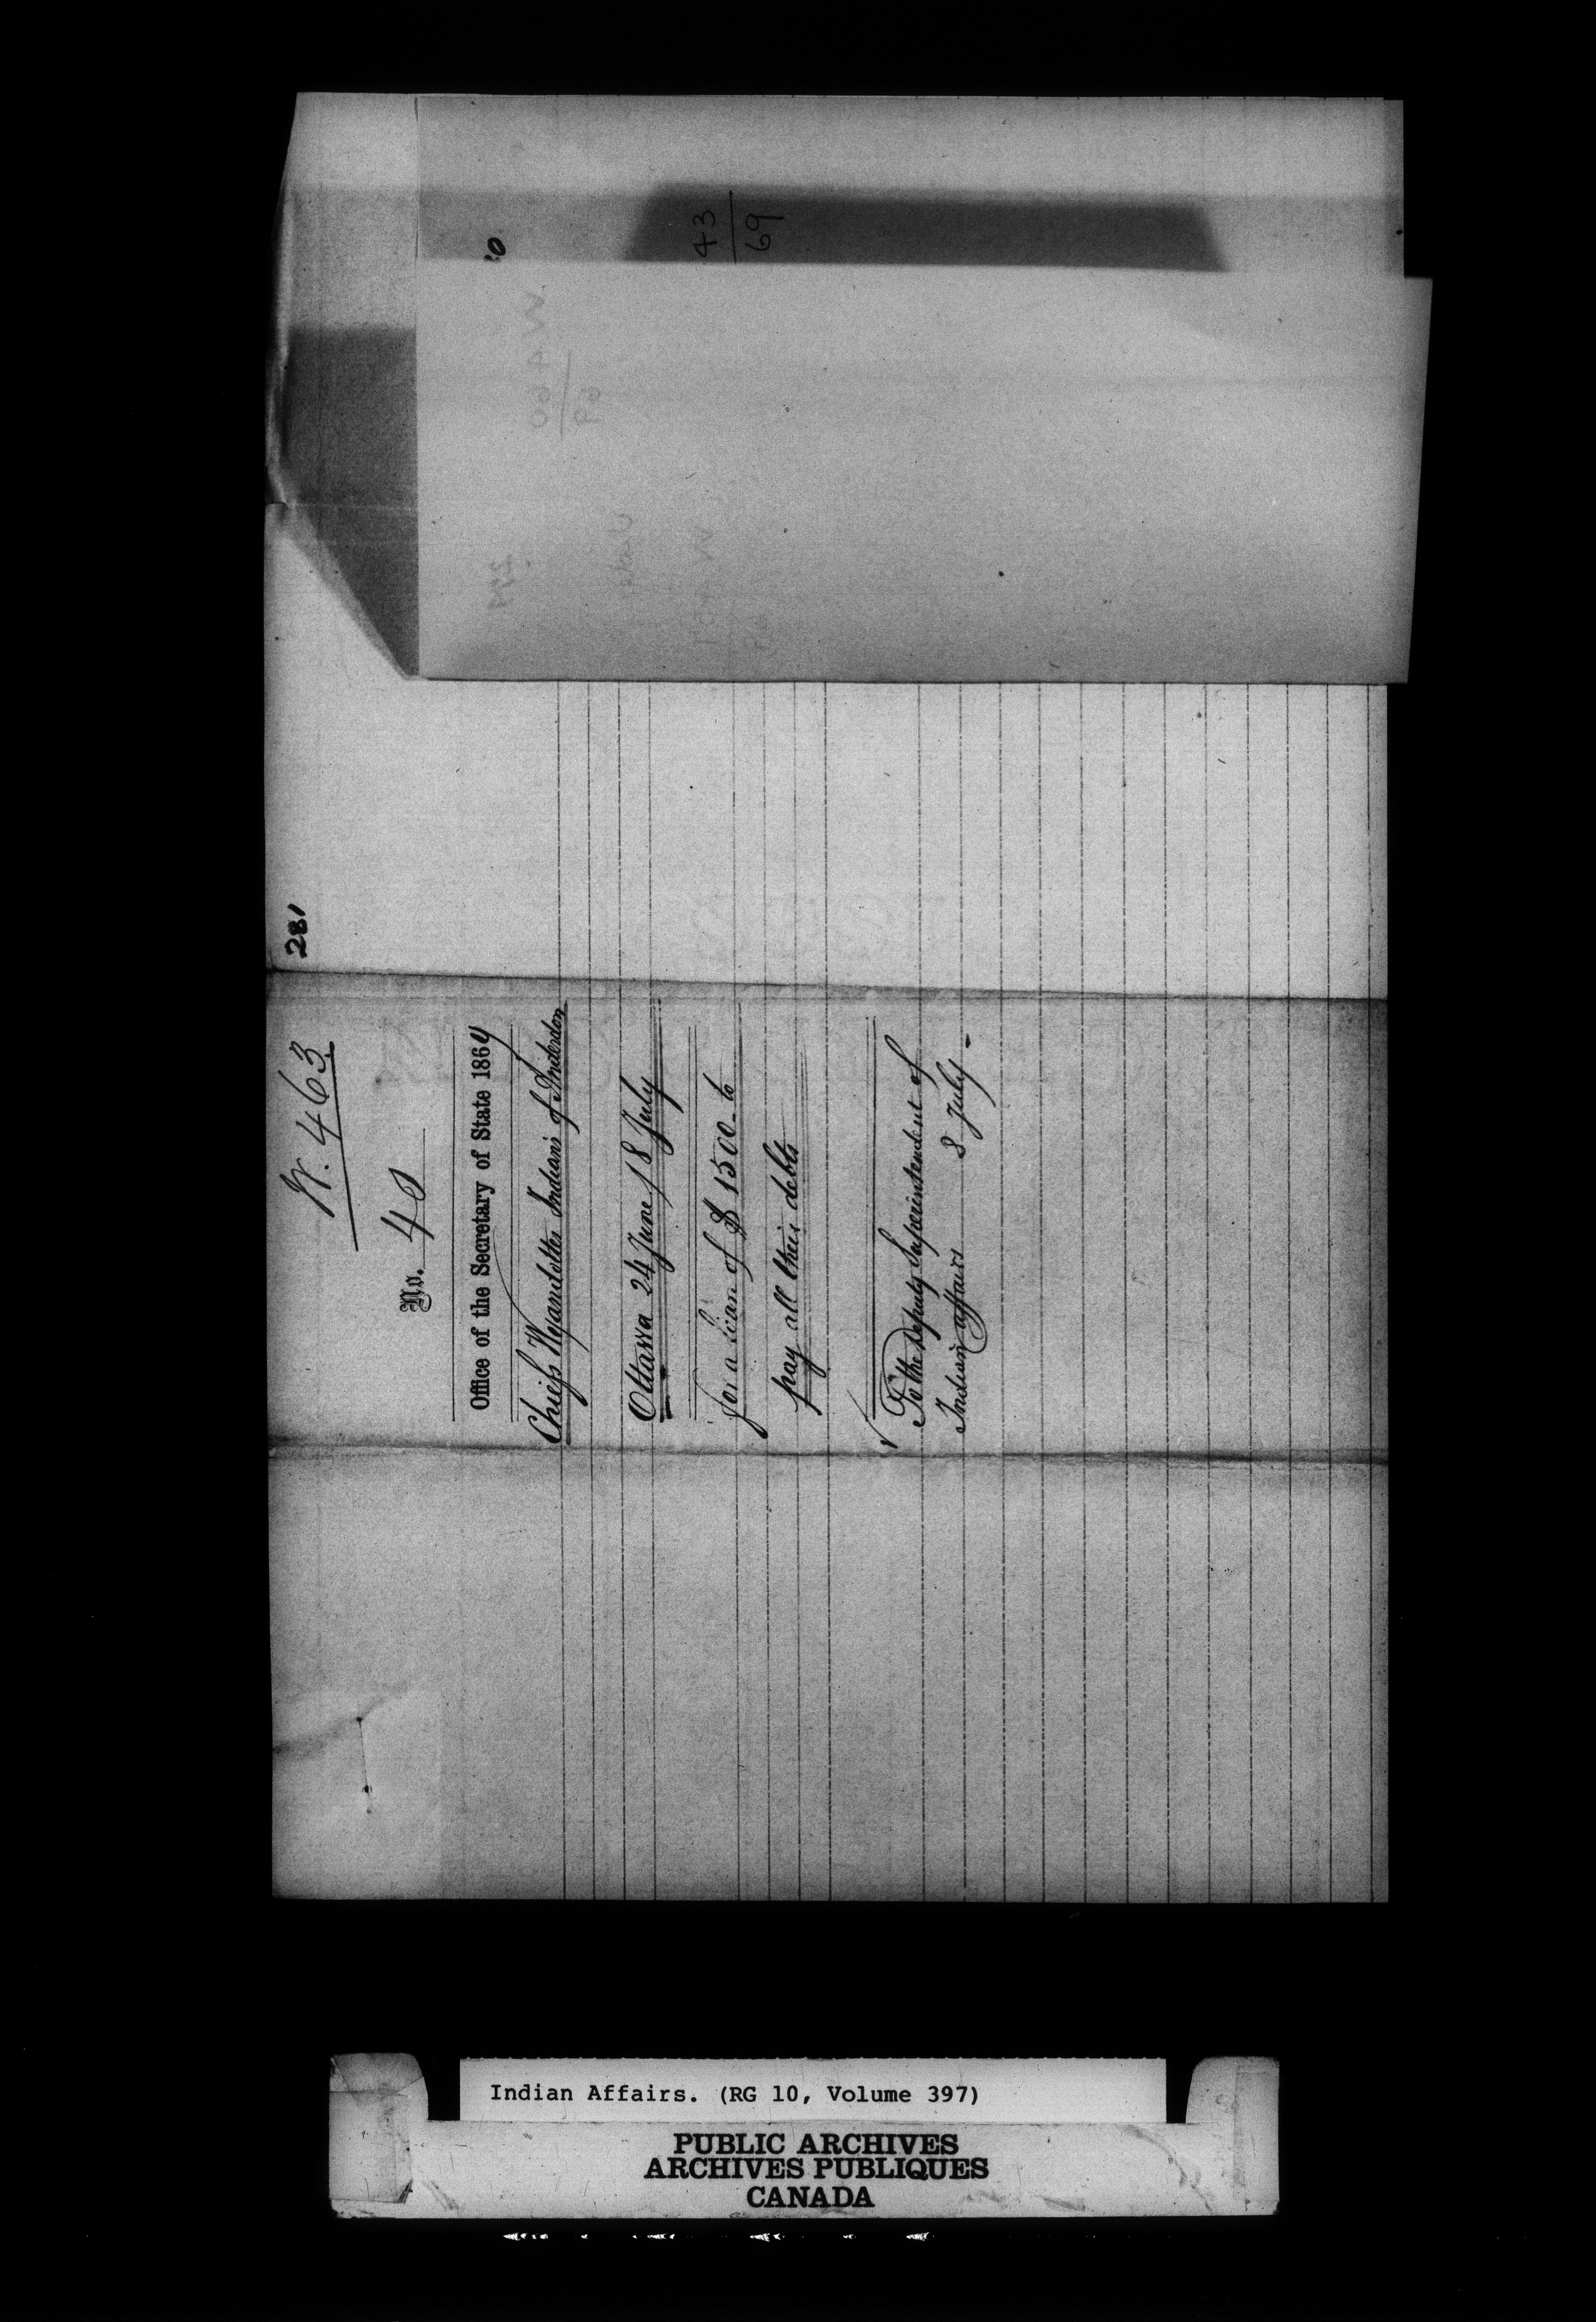 281
W. 463
No. 40
Office of the Secretary of State 1864
Chiefs Wyandotte Indians of Anderdon
Ottawa 24 June / 8 July
for a loan of $1500 to
pay all their debts
To the Deputy Superintendent of
Indian affairs 8 July -
43
69
Indian Affairs. (RG 10, Volume 397)
PUBLIC ARCHIVES
ARCHIVES PUBLIQUES
CANADA